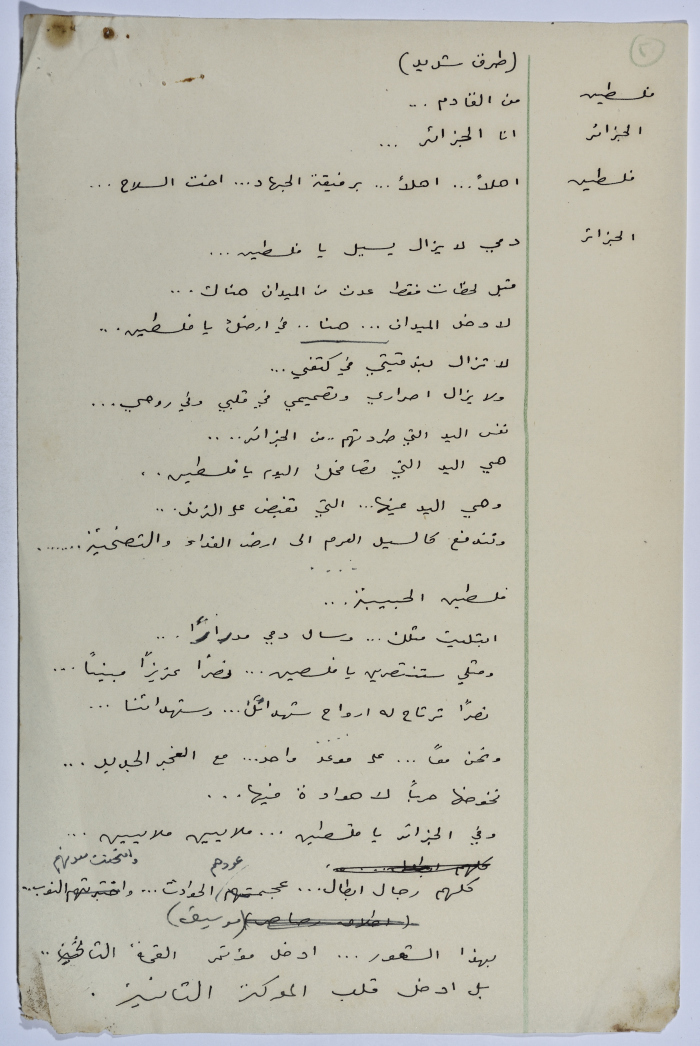 ٢
(طرق شديد)
فلسطين من القادم ...
الجزائر انا الجزائر ...
فلسطين اهلاً ... اهلاً ... برفيقة الجهاد ... اخت السلاح ...
الجزائر دمي لا يزال يسيل يا فلسطين ...
قبل لحظات فقط عدت من الميدان هناك ...
لادخل الميدان ... هنا .. في ارضك يا فلسطين ..
لا تزال بندقيتي في كتفي ...
ولا يزال اصراري وتصميمي في قلبي وفي روحي ...
نفس اليد التي طردتهم .. من الجزائر ....
هي اليد التي تصافحك اليوم يا فلسطين ..
وهي اليد عينها ... التي تقبض على الزند ...
وتندفع كالسيل العرم الى ارض الفداء والتضحية .......
....
فلسطين الحبيبة ...
ابتليت مثلك ... وسال دمي مدرارًا ...
ومثلي ستنتصرين يا فلسطين ... نصرًا عزيزًا مبينًا ...
نصرًا ترتاح له ارواح شهدائك ... وشهدائنا ...
ونحن معًا ... على موعد واحد ... مع الفجر الجديد ...
نخوضها حربًا لا هوادة فيها ...
وفي الجزائر يا فلسطين ... ملايين ملايين ...
كلهم ابطال ...
عودهم وامتحنت معدنهم
كلهم رجال ابطال ... عجمتهم الحوادث ... واختبرتهم النوب ..
(اطلاق رصاص) (موسيقى)
بهذا الشعور ... ادخل مؤتمر القمة الثاني ..
بل ادخل قلب المعركة الثانية .